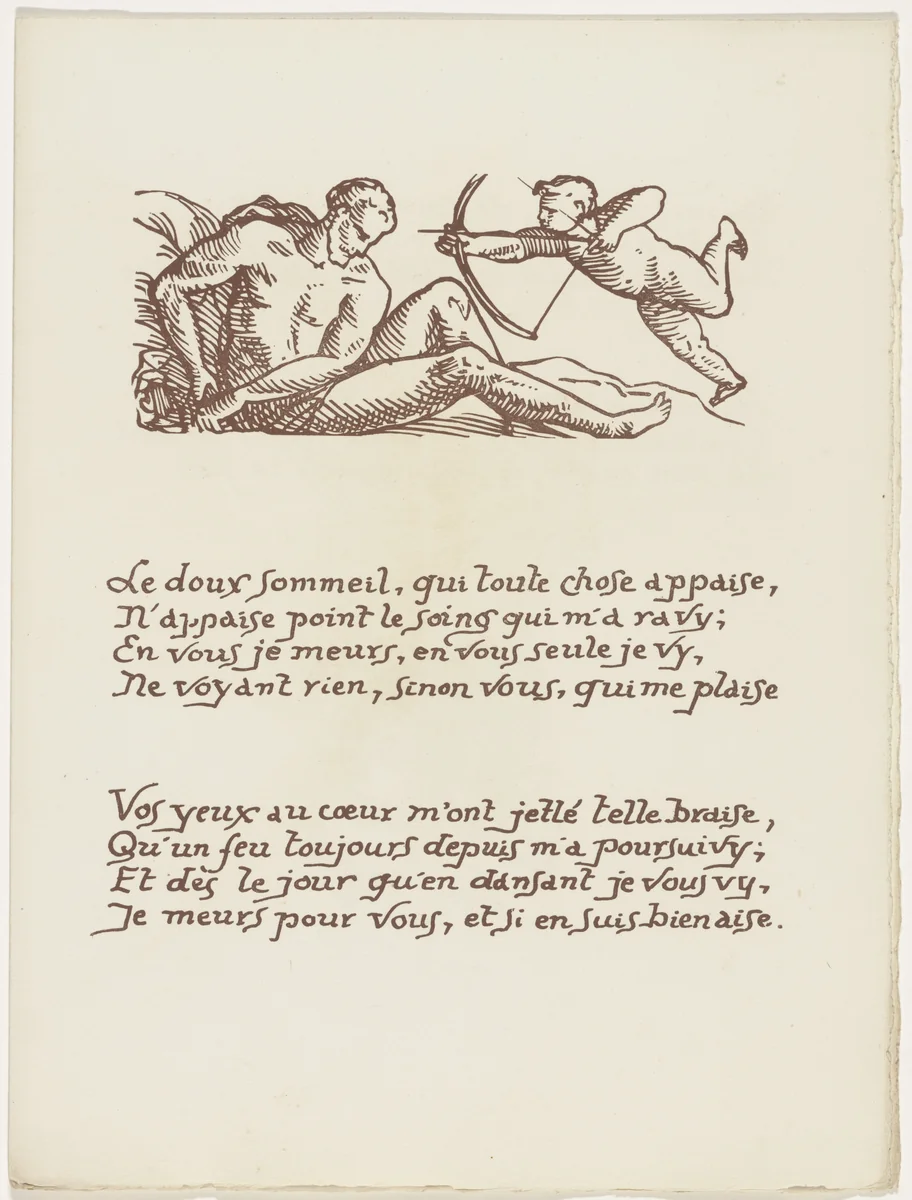 Le doux sommeil, qui toute chose appaise,
N'appaise point le soing qui m'a ravy;
En vous je meurs, en vous seule je vy,
Ne voyant rien, sinon vous, qui me plaise
Vos yeux au cœur m'ont jetté telle braise,
Qu'un feu toujours depuis m'a poursuivy;
Et dès le jour qu'en dansant je vous vy,
Je meurs pour vous, et si en suis bien aise.